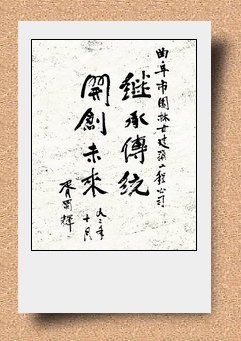 曲阜市園林古建築工程公司
继承傳統
開創未來
九二年
十月